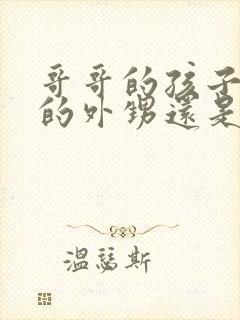 哥哥的孩子
的外甥還是
溫瑟斯